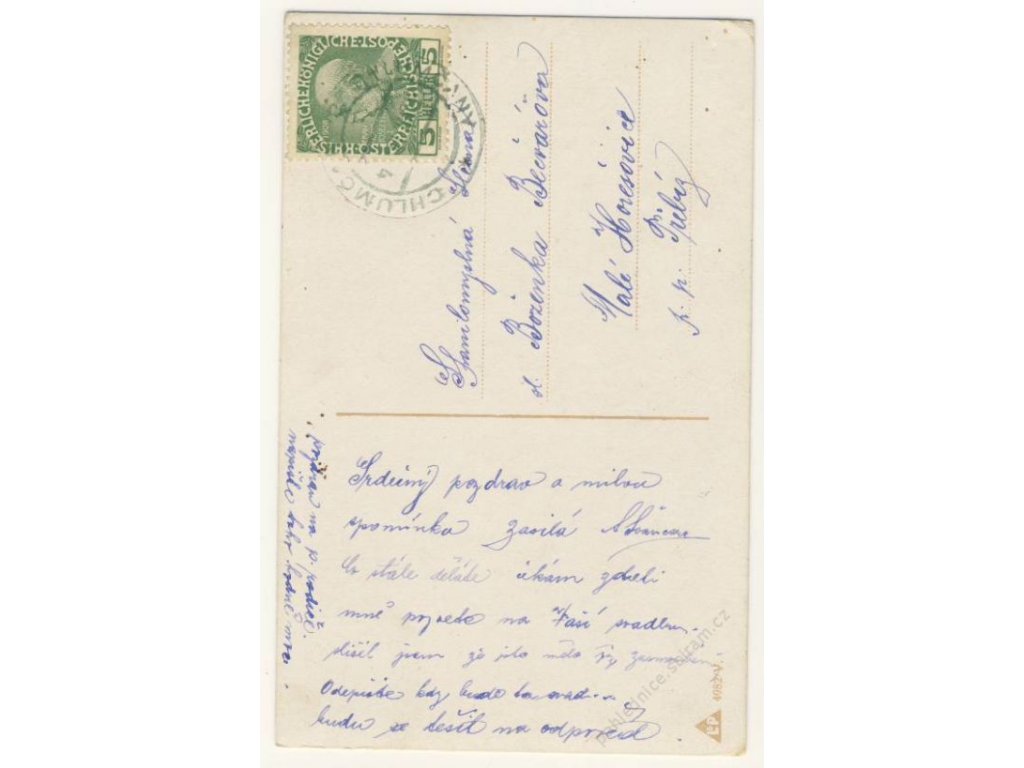 KAISERLICHE KÖNIGLICHE ÖSTERREICHISCHE POST
5 HELLER 5
CHLUMČANY
Slečna
sl. Boženka Bečvářova
Malé Horešovice
p. p. Třebíz
Srdečný pozdrav a milou
spomínku zasilá
Co stále děláte čekám zdali
mně pozvete na Vaší svadbu.
slišel jsem že
Odepište kdy bude ta
budu se těšit na odpověd.
pozdrav na p. rodiče.
napište
pohlednice.sbiram.cz
LP 4982